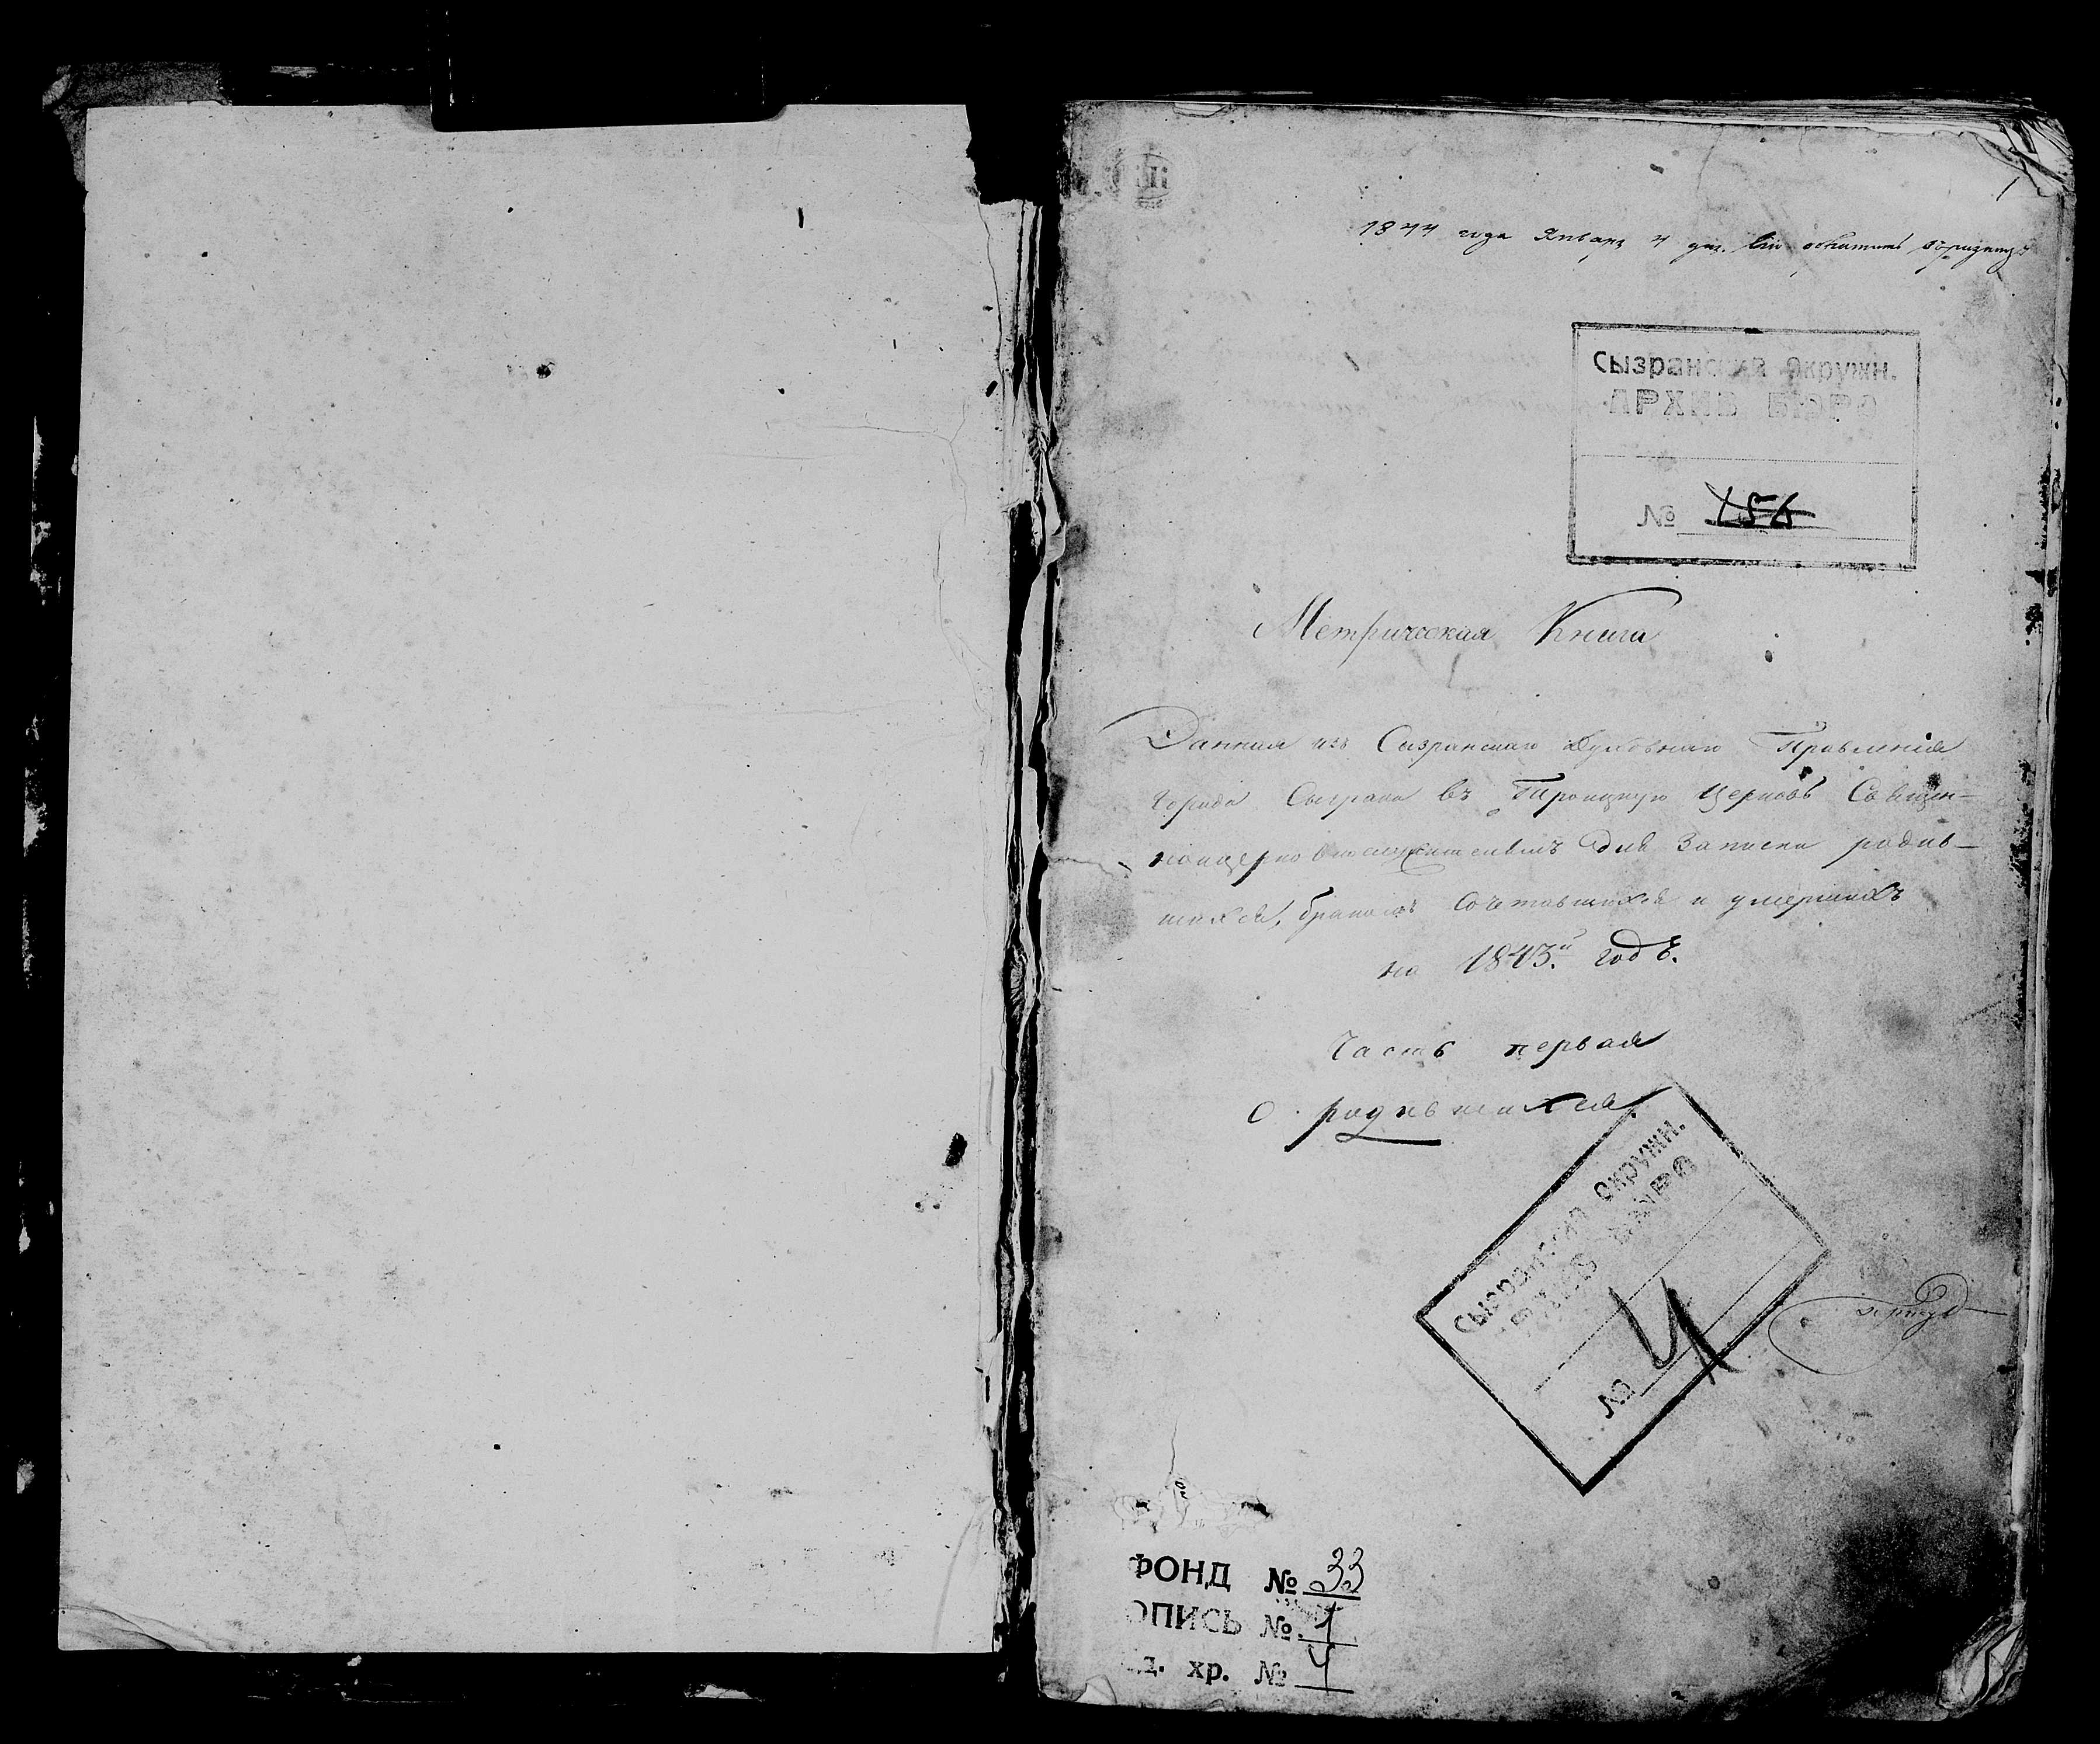 1
1844 года Января 4 дня.
Сызранский окружн.
АРХИВ БЮРО
№ 156
Метрическая Книга
Данная изъ Сызранскаго Духовнаго Правленія
Города Сызрани въ Троицкую Церковь Священ-
ноцерковнослужителямъ для записки родив-
шихся, бракомъ Сочетавшихся и умершихъ
на 1843й годъ.
Часть первая
О родившихся.
Сызранский окружн.
АРХИВ БЮРО
№ 4
ФОНД № 33
ОПИСЬ № 1
д. хр. № 4